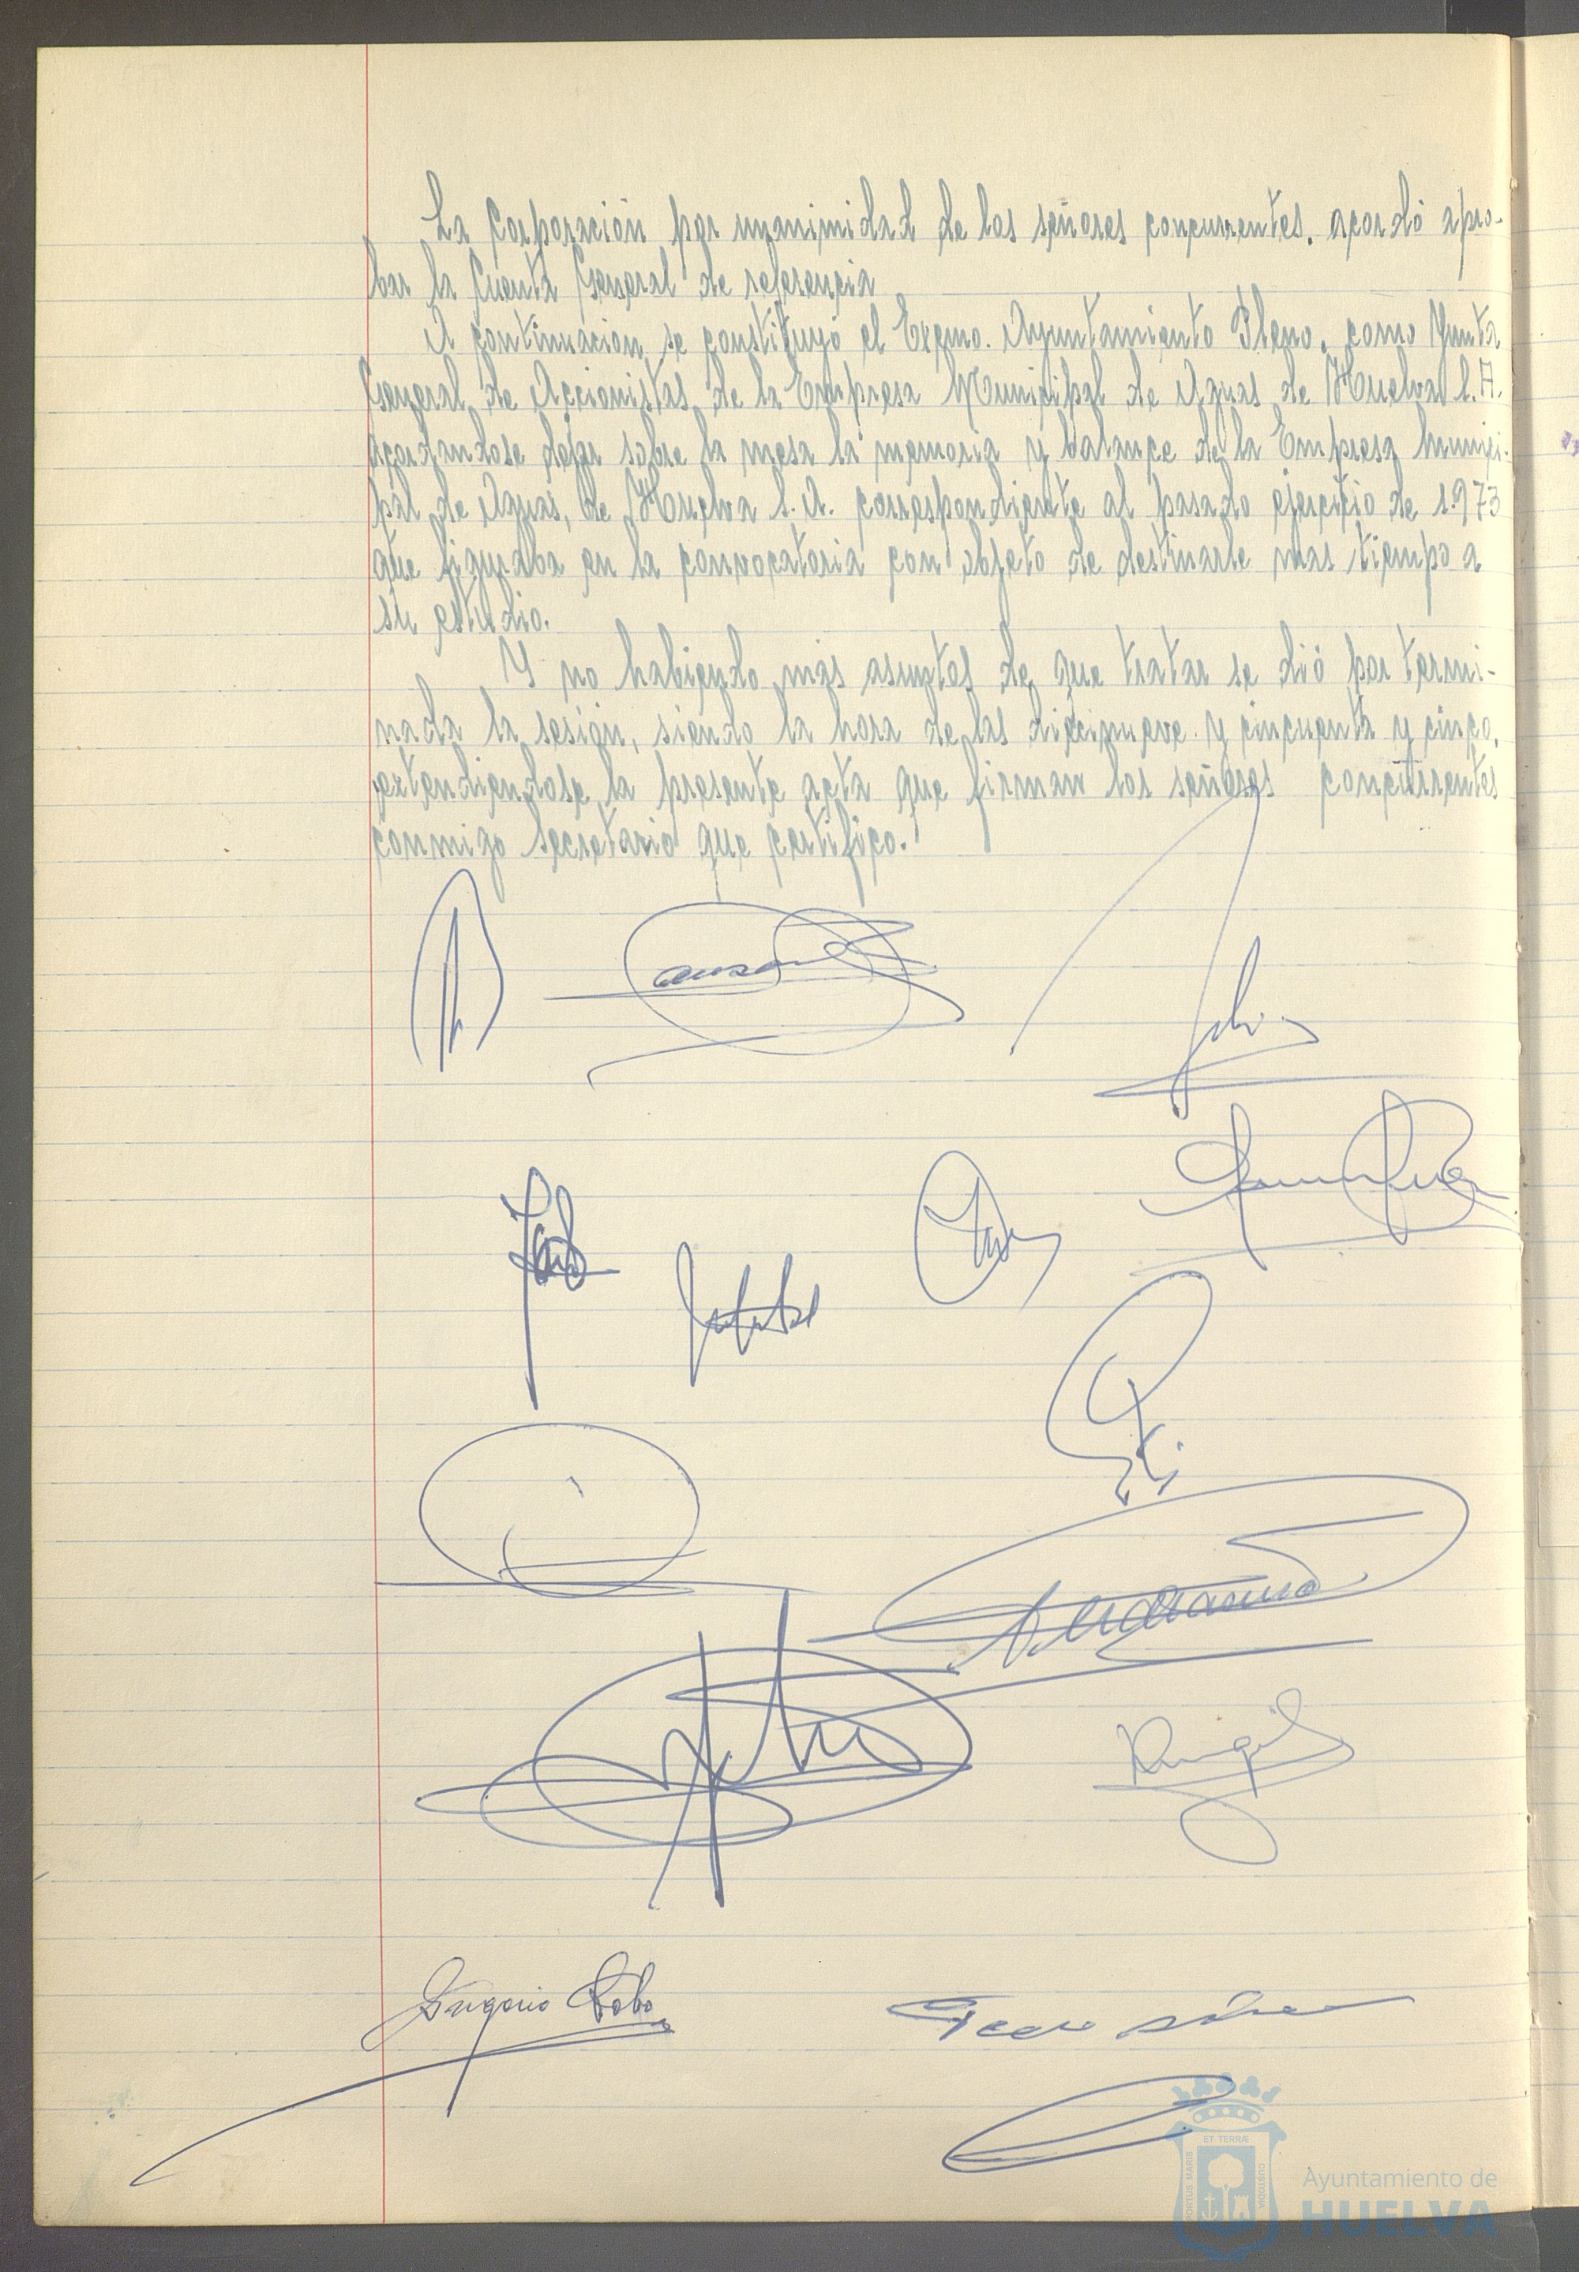 La Corporación por unanimidad de los señores concurrentes, acordó apro-
bar la Cuenta General de referencia
A continuación se constituyó el Excmo. Ayuntamiento Pleno, como Junta
General de Accionistas de la Empresa Municipal de Aguas de Huelva S.A.
acordandose dejar sobre la mesa la memoria y balance de la Empresa Munici-
pal de Aguas, de Huelva S.A. correspondiente al pasado ejercicio de 1.973
que figuraba en la convocatoria con objeto de destinarle mas tiempo a
su estudio.
Y no habiendo más asuntos de que tratar se dió por termi-
nada la sesión, siendo la hora de las diecinueve y cincuenta y cinco,
extendiendose la presente acta que firman los señores concurrentes
conmigo Secretario que certifico.
Gregorio Lobo
ET TERRÆ
PORTUS MARIS
CUSTODIA
Ayuntamiento de
HUELVA